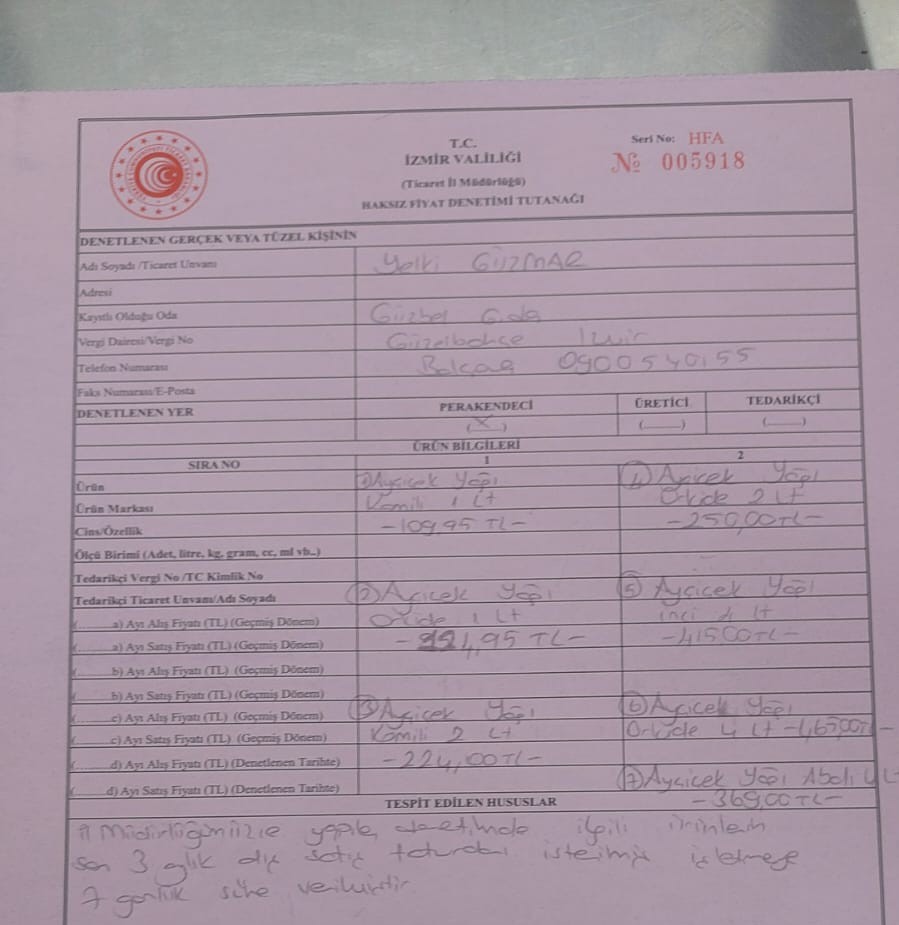 T.C.
İZMİR VALİLİĞİ
(Ticaret İl Müdürlüğü)
HAKSIZ FİYAT DENETİMİ TUTANAĞI
Seri No: HFA
№ 005918
DENETLENEN GERÇEK VEYA TÜZEL KİŞİNİN
Adı Soyadı /Ticaret Unvanı
Adresi
Kayıtlı Olduğu Oda Gıda
Vergi Dairesi/Vergi No Güzelbahçe İzmir
Telefon Numarası
Faks Numarası/E-Posta
DENETLENEN YER PERAKENDECİ ÜRETİCİ TEDARİKÇİ
(X) (___) (___)
ÜRÜN BİLGİLERİ
SIRA NO 1 2
Ürün Ayçiçek Yağı (4) Ayçicek Yağı
Ürün Markası Komili 1 Lt Orkide 2 Lt
Cins/Özellik -109,95 TL- -250,00TL-
Ölçü Birimi (Adet, litre, kg, gram, cc, ml vb..)
Tedarikçi Vergi No /TC Kimlik No
Tedarikçi Ticaret Unvanı/Adı Soyadı (2) Ayçicek Yağı (5) Ayçicek Yağı
(.........a) Ayı Alış Fiyatı (TL) (Geçmiş Dönem) Orkide 1 Lt inci 4 Lt
(.........a) Ayı Satış Fiyatı (TL) (Geçmiş Dönem) 4,95 TL- -415,00TL-
(.........b) Ayı Alış Fiyatı (TL) (Geçmiş Dönem)
(.........b) Ayı Satış Fiyatı (TL) (Geçmiş Dönem)
(.........c) Ayı Alış Fiyatı (TL) (Geçmiş Dönem) (3) Ayçicek Yağı (6) Ayçicek Yağı
(.........c) Ayı Satış Fiyatı (TL) (Geçmiş Dönem) Komili 2 Lt Orkide 4 Lt
(.........d) Ayı Alış Fiyatı (TL) (Denetlenen Tarihte) -224,00TL-
(.........d) Ayı Satış Fiyatı (TL) (Denetlenen Tarihte) (7) Ayçicek Yağı
-369,00TL-
TESPİT EDİLEN HUSUSLAR
il Müdürlüğümüzce yapılan denetimde ilgili ürünlerin
son 3 aylık alış satış faturaları
7 günlük süre verilmiştir.